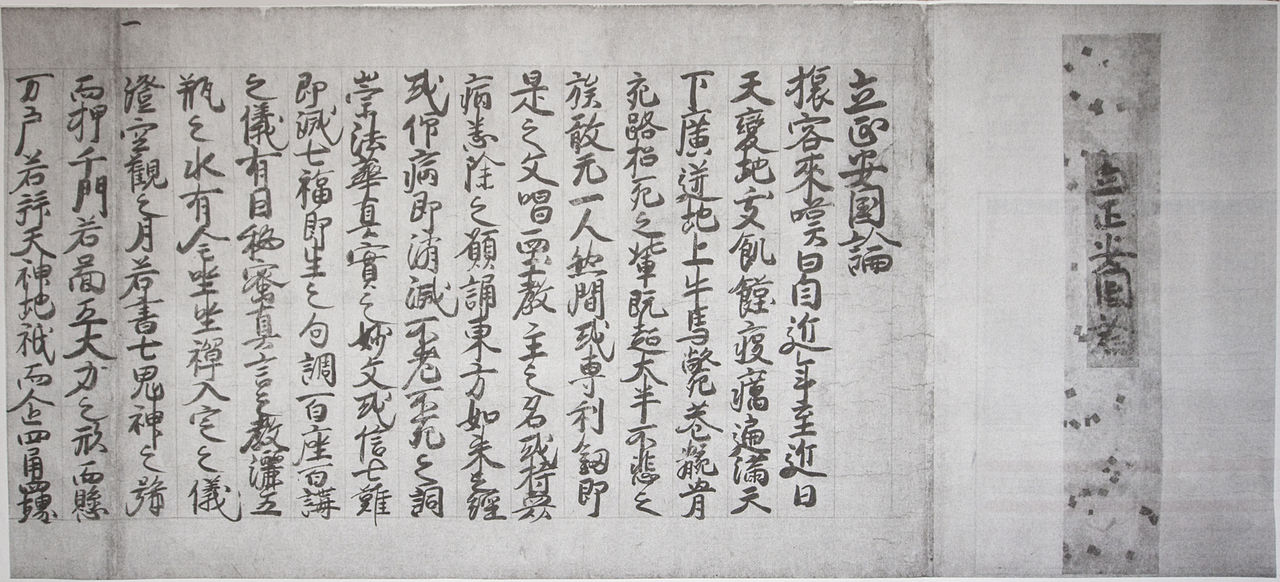 立正安国論
立正安国論
旅客來嘆曰自近年至近日
天變地夭飢饉疫癘遍滿天
下廣迸地上牛馬斃巷骸骨
充路招死之輩既超大半不悲之
族敢无一人然間或專利劔即
是之文唱西土教主之名或持衆
病悉除之願誦東方如来之經
或仰病即消滅不老不死之詞
崇法華真實之妙文或信七難
即滅七福即生之句調百座百講
之儀有因秘密真言之教灑五
瓶之水有全坐禪入定之儀
澄空觀之月若書七鬼神之號
而押千門若圖五大力之形而懸
万戸若拜天神地祇而企四角四堺